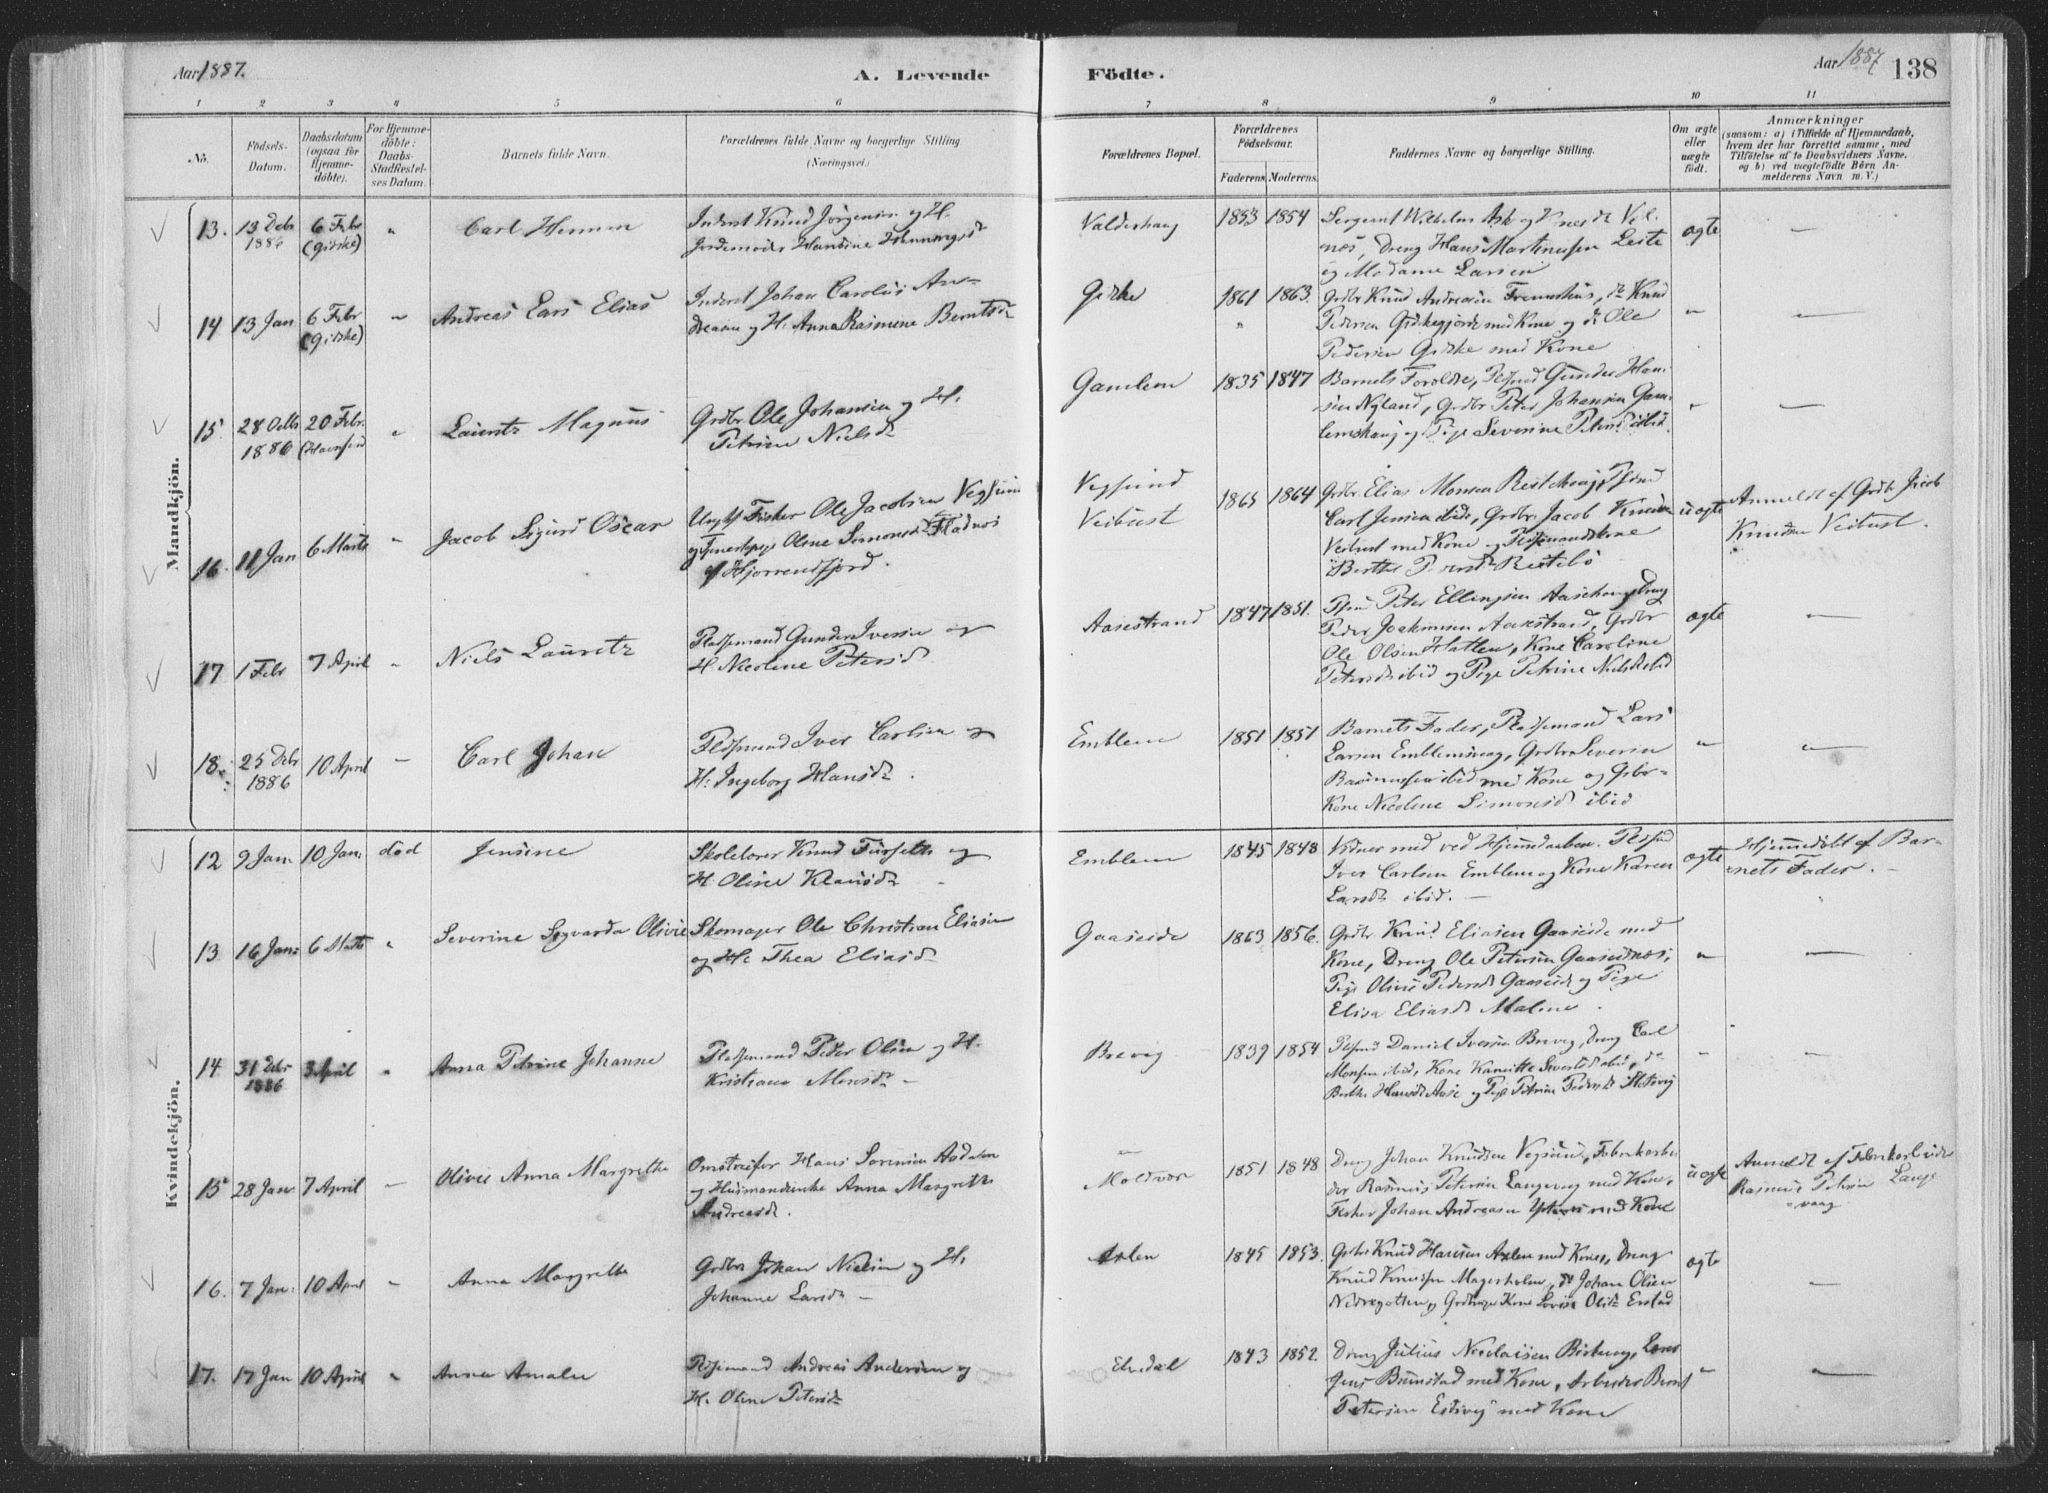 Aar 1887.
A. Levende
Födte.
Aar 1887
138
1 2 3 4 5 6 7 8 9 10 11
No.
Födsels-
Datum.
Daabsdatum
(ogsaa for
Hjemme-
döbte).
For Hjemme-
döbte:
Daabs-
Stadfæstel-
ses Datum.
Barnets fulde Navn.
Forældrenes fulde Navne og borgerlige Stilling
(Næringsvei.)
Forældrenes Bopæl.
Forældrenes
Födselsaar.
Faderens. Moderens.
Faddernes Navne og borgerlige Stilling.
Om ægte
eller
uægte
födt.
Anmærkninger
(saasom: a) i Tilfælde af Hjemmedaab,
hvem der har forrettet samme, med
Tilföielse af to Daabsvidners Navne,
og b) ved uægtefödte Börn An-
melderens Navn m. V.)
Mandkjön.
13. 13 Debr
1886
6 Febr
(Giske)
"
Carl
Inderst Knud Jörgensen og H.
Jordemoder Hansine
Valderhaug
1853 1854
Sergeant Wilhelm Ask og
Dreng Hans Martinussen Leite
og Madame Larsen
ægte
—
14 13 Jan
6 Febr
(Giske)
"
Andreas Lars Elias
Inderst Johan Carolus An-
dreasen og H. Anna Rasmine Berntsd
Giske
1861 1863.
Grdbr Knud Andreasen
Pedersen Giskegjerde med Kone og do Ole
Pedersen Giske med Kone
"
—
15 28 Octb
1886
20 Febr.
"
Lauritz Magnus
Grdbr Ole Johansen og H.
Petrine Nielsd
Gamlem
1835 1847
Barnets Foroldre, Gunder Han-
sen Nyland, Grdbr Peter Johansen Gam-
lemshaug og Pige Severine Petersd ibid.
"
—
16. 11 Jan
6 Marts
"
Jacob Sigurd Oscar
Ungk Fisker Ole Jacobsen Vegsund
og Tjenestepige Oline Simonsd Fladnes
af Hjorrendfjord.
Vegsund
Veibust
1865 1864
Grdbr. Elias Monsen
Carl Jensen ibid, Grdbr. Jacob Knudsen
Veibust med Kone og Pladsmandskone
Berthe
uægte
Anmeldt af Grdbr Jacob
Knudsen Veibust.
17 1 Febr
7 April
"
Niels Lauritz
Pladsmand Gunder Iversen og
H. Nicoline Petersd
Aasestrand
1847 1851.
Peter Ellingsen Aasehaug, Dreng
Peder Joakimsen Aasestrand, Grdbr
Ole Olsen Hatlen, Kone Caroline
Petersd ibid og Pige Petrine Nielsd ibid
ægte
—
18. 25 Debr
1886
10 April
—
Carl Johan
Pladsmand Iver Carlsen og
H. Ingeborg Hansd.
Emblem
1851 1851
Barnets Fader, Pladsmand Lars
Larsen Emblemsvaag, Grdbr Severin
Rasmussen ibid med Kone og Grdbr-
Kone Nicoline Simonsd ibid
"
—
Kvindekjön.
12 9 Jan.
10 Jan.
död
Jensine
Skolelærer Knud Furseth og
H. Oline Klausd
Emblem
1845 1848
Vidner med ved Hjemmdaaben. Pladsmd
Iver Carlsen Emblem og Kone Karen
Larsd ibid. —
ægte
Hjemmedöbt af Bar-
nets Fader. —
13 16 Jan.
6 Marts
"
Severine Sygvarda Olivie
Skomager Ole Christian Eliasen
og H. Thea Eliasd
Gaaseide
1863 1856.
Grdbr Knud Eliasen Gaaseide med
Kone, Dreng Ole Petersen Gaaseidnæs,
Pige Olivie Pedersd Gaaseid og Pige
Elisa Eliasd Malene.
"
—
14 31 Debr
1886
3 April
"
Anna Petrine Johanne
Pladsmand Peder Olsen og H.
Kristiane Monsd —
Brevig
1839 1854
Daniel Iversen Brevig, Dreng Carl
Monsen ibid, Kone Sivertsd ibid, do
Berthe Hansd Aase og Pige Petrine Pedersd
"
"
15 28 Jan.
7 April
—
Olivie Anna Margrethe
Omstreifer Hans Sorensen Asdalen
og Husmandsenke Anna Margrethe
Andreasd.
Moldvær
1851 1848
Dreng Johan Knudsen Vegsund, Feberkarbei-
der Rasmus Petersen Langevaag med Kone,
Fisker Johan Andreasen med Kone
uægte
Anmeldt af
Rasmus Petersen Lange-
vaag
16. 7 Jan.
10 April
—
Anna Margrethe
Grdbr Johan Nielsen og H.
Johanne Larsd —
Axlen
1845 1853.
Grdbr Knud Hansen Axlen med Kone, Dreng
Knud Knudsen Magerholm, do Johan Olsen
Kone Lovise Olsd Erstad
ægte
—
17. 17 Jan
10 April
"
Anna Amalie
Pladsmand Andreas Andersen og
H. Oline Petersd
Elvedal
1843 1852.
Dreng Julius Nicolaisen
Jens Brunstad med Kone, Arbeider Bernt
Petersen med Kone
"
—